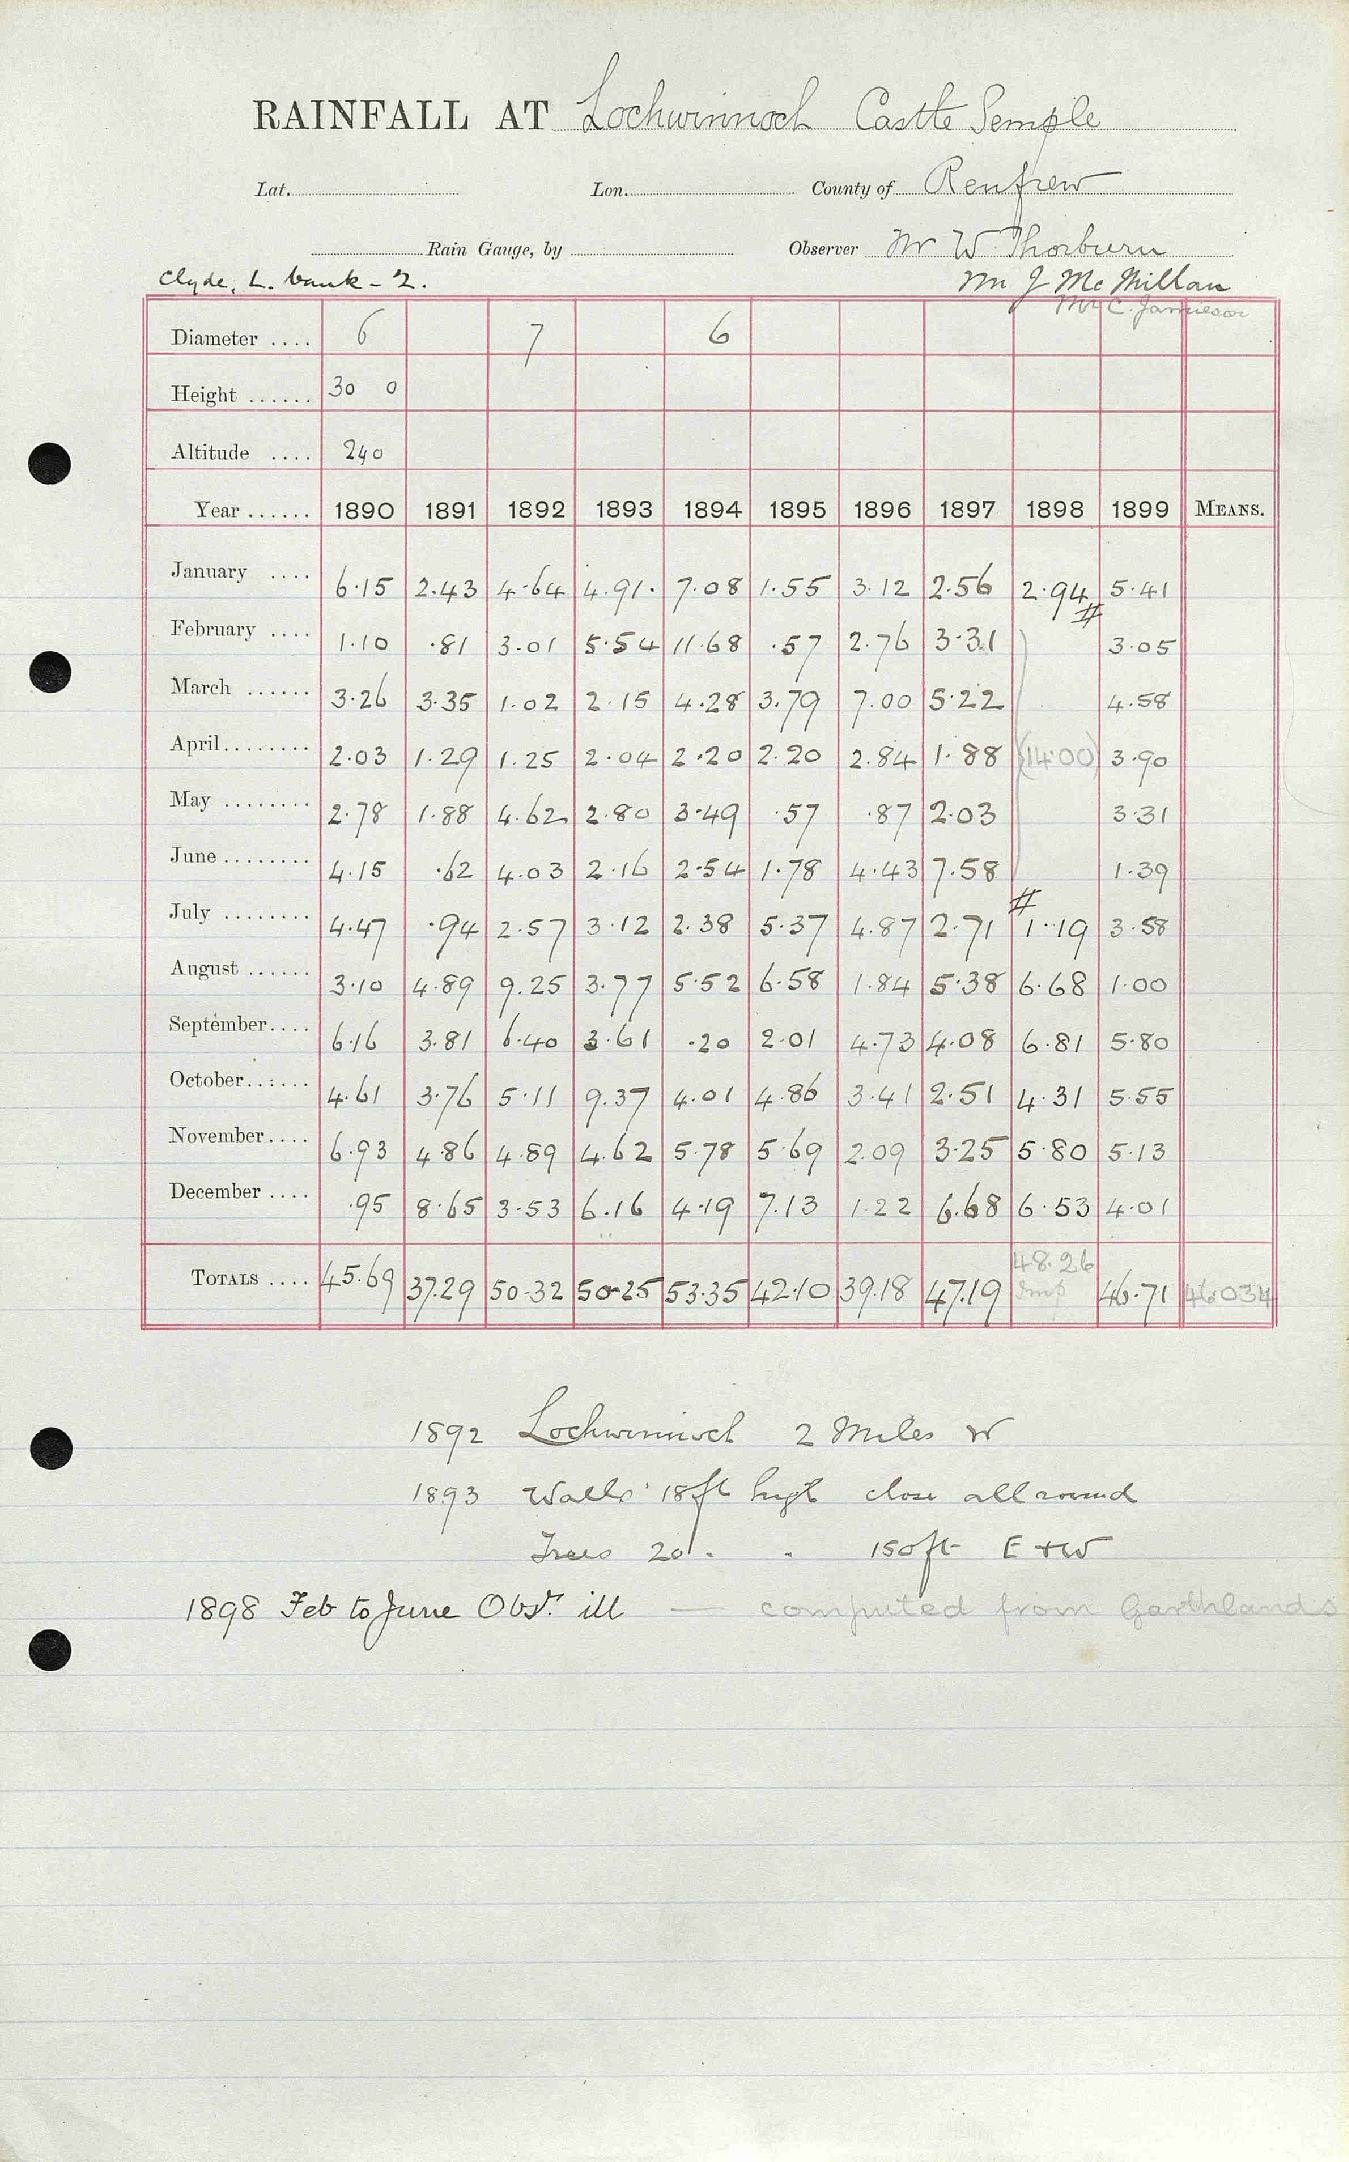 RAINFALL AT Lochwinnoch Castle Semple
Lat. Lon. County of Renfrew
Rain Gauge, by Observer Mr W Thorburn
Clyde, L. bank - 2. Mr J McMillan
Mr C. Jamieson
Diameter .... 6 7 6
Height ...... 30 0
Altitude .... 240
Year ...... 1890 1891 1892 1893 1894 1895 1896 1897 1898 1899 MEANS.
January .... 6.15 2.43 4.64 4.91. 7.08 1.55 3.12 2.56 2.94 5.41
#
February .... 1.10 .81 3.01 5.54 11.68 .57 2.76 3.31 3.05
March ...... 3.26 3.35 1.02 2.15 4.28 3.79 7.00 5.22 4.58
April ........ 2.03 1.29 1.25 2.04 2.20 2.20 2.84 1.88 (14.00) 3.90
May ........ 2.78 1.88 4.62 2.80 3.49 .57 .87 2.03 3.31
June ........ 4.15 .62 4.03 2.16 2.54 1.78 4.43 7.58 1.39
#
July ........ 4.47 .94 2.57 3.12 2.38 5.37 4.87 2.71 1.19 3.58
August ...... 3.10 4.89 9.25 3.77 5.52 6.58 1.84 5.38 6.68 1.00
September.... 6.16 3.81 6.40 3.61 .20 2.01 4.73 4.08 6.81 5.80
October....... 4.61 3.76 5.11 9.37 4.01 4.86 3.41 2.51 4.31 5.55
November.... 6.93 4.86 4.89 4.62 5.78 5.69 2.09 3.25 5.80 5.13
December .... .95 8.65 3.53 6.16 4.19 7.13 1.22 6.68 6.53 4.01
TOTALS .... 45.69 37.29 50.32 50.25 53.35 42.10 39.18 47.19 48.26 46.71 46.034
Imp
1892 Lochwinnoch 2 Miles W
1893 Walls 18ft high close all round
Trees 20 . . 150ft E + W
1898 Feb to June Obsr. ill — computed from Garthlands